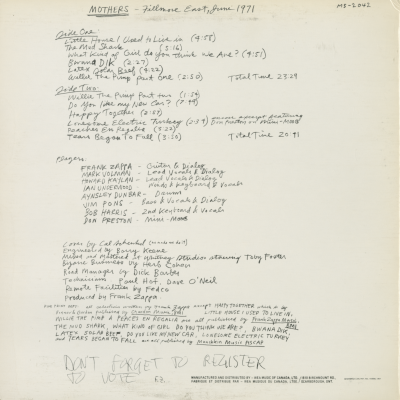 MOTHERS - Fillmore East, June 1971
MS-2042
Side One:
Little House I Used to Live in (4:58)
The Mud Shark (5:16)
What Kind of Girl do you think we Are? (4:51)
Bwana DIK (2:27)
Latex Solar Beef (4:22)
Willie The Pimp Part one (2:50) Total Time 23:29
Side Two:
Willie The Pimp Part two (1:54)
Do You like my New Car? (7:44)
Happy Together (2:57)
Lonesome Electric Turkey (2:34)
Peaches En Regalia (3:22)
Tears Began To Fall (3:30) Total Time 20:41
Players:
FRANK ZAPPA - Guitar & Dialog
MARK VOLMAN - Lead Vocals & Dialog
HOWARD KAYLAN - Lead Vocals & Dialog
IAN UNDERWOOD - Winds & Keyboard & Vocals
AYNSLEY DUNBAR - Drums
JIM PONS - Bass & Vocals & Dialog
BOB HARRIS - 2nd Keyboard & Vocals
DON PRESTON - Mini-Moog
Cover by Cal Schenkel
Engineered by Barry Keene
Mixed and Mastered at Whitney Studios starring Toby Foster
Bizness Business by Herb Cohen
Road Manager by Dick Barber
Technicians Paul Hof, Dave O'Neil
Remote Facilities by Fedco
Produced by Frank Zappa.
all selections written by Frank Zappa except HAPPY TOGETHER
LITTLE HOUSE I USED TO LIVE IN,
WILLIE THE PIMP & PEACHES EN REGALIA are all published by Frank Zappa Music, BMI.
THE MUD SHARK, WHAT KIND OF GIRL DO YOU THINK WE ARE?, BWANA DIK
LATEX SOLAR BEEF, DO YOU LIKE MY NEW CAR, LONESOME ELECTRIC TURKEY
and TEARS BEGAN TO FALL are all published by Munchkin Music ASCAP
DON'T FORGET TO REGISTER
TO VOTE FZ.
MANUFACTURED AND DISTRIBUTED BY